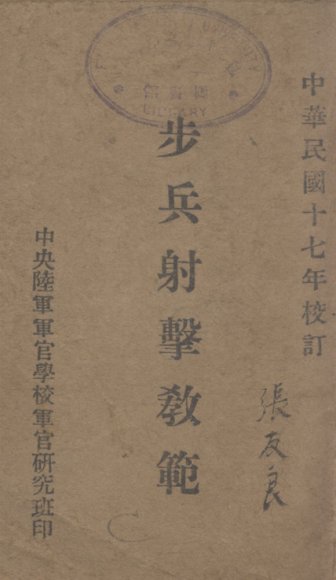 中華民國十七年校訂
張友良
步兵射擊教範
中央陸軍軍官學校軍官研究班印
圖書館
LIBRARY